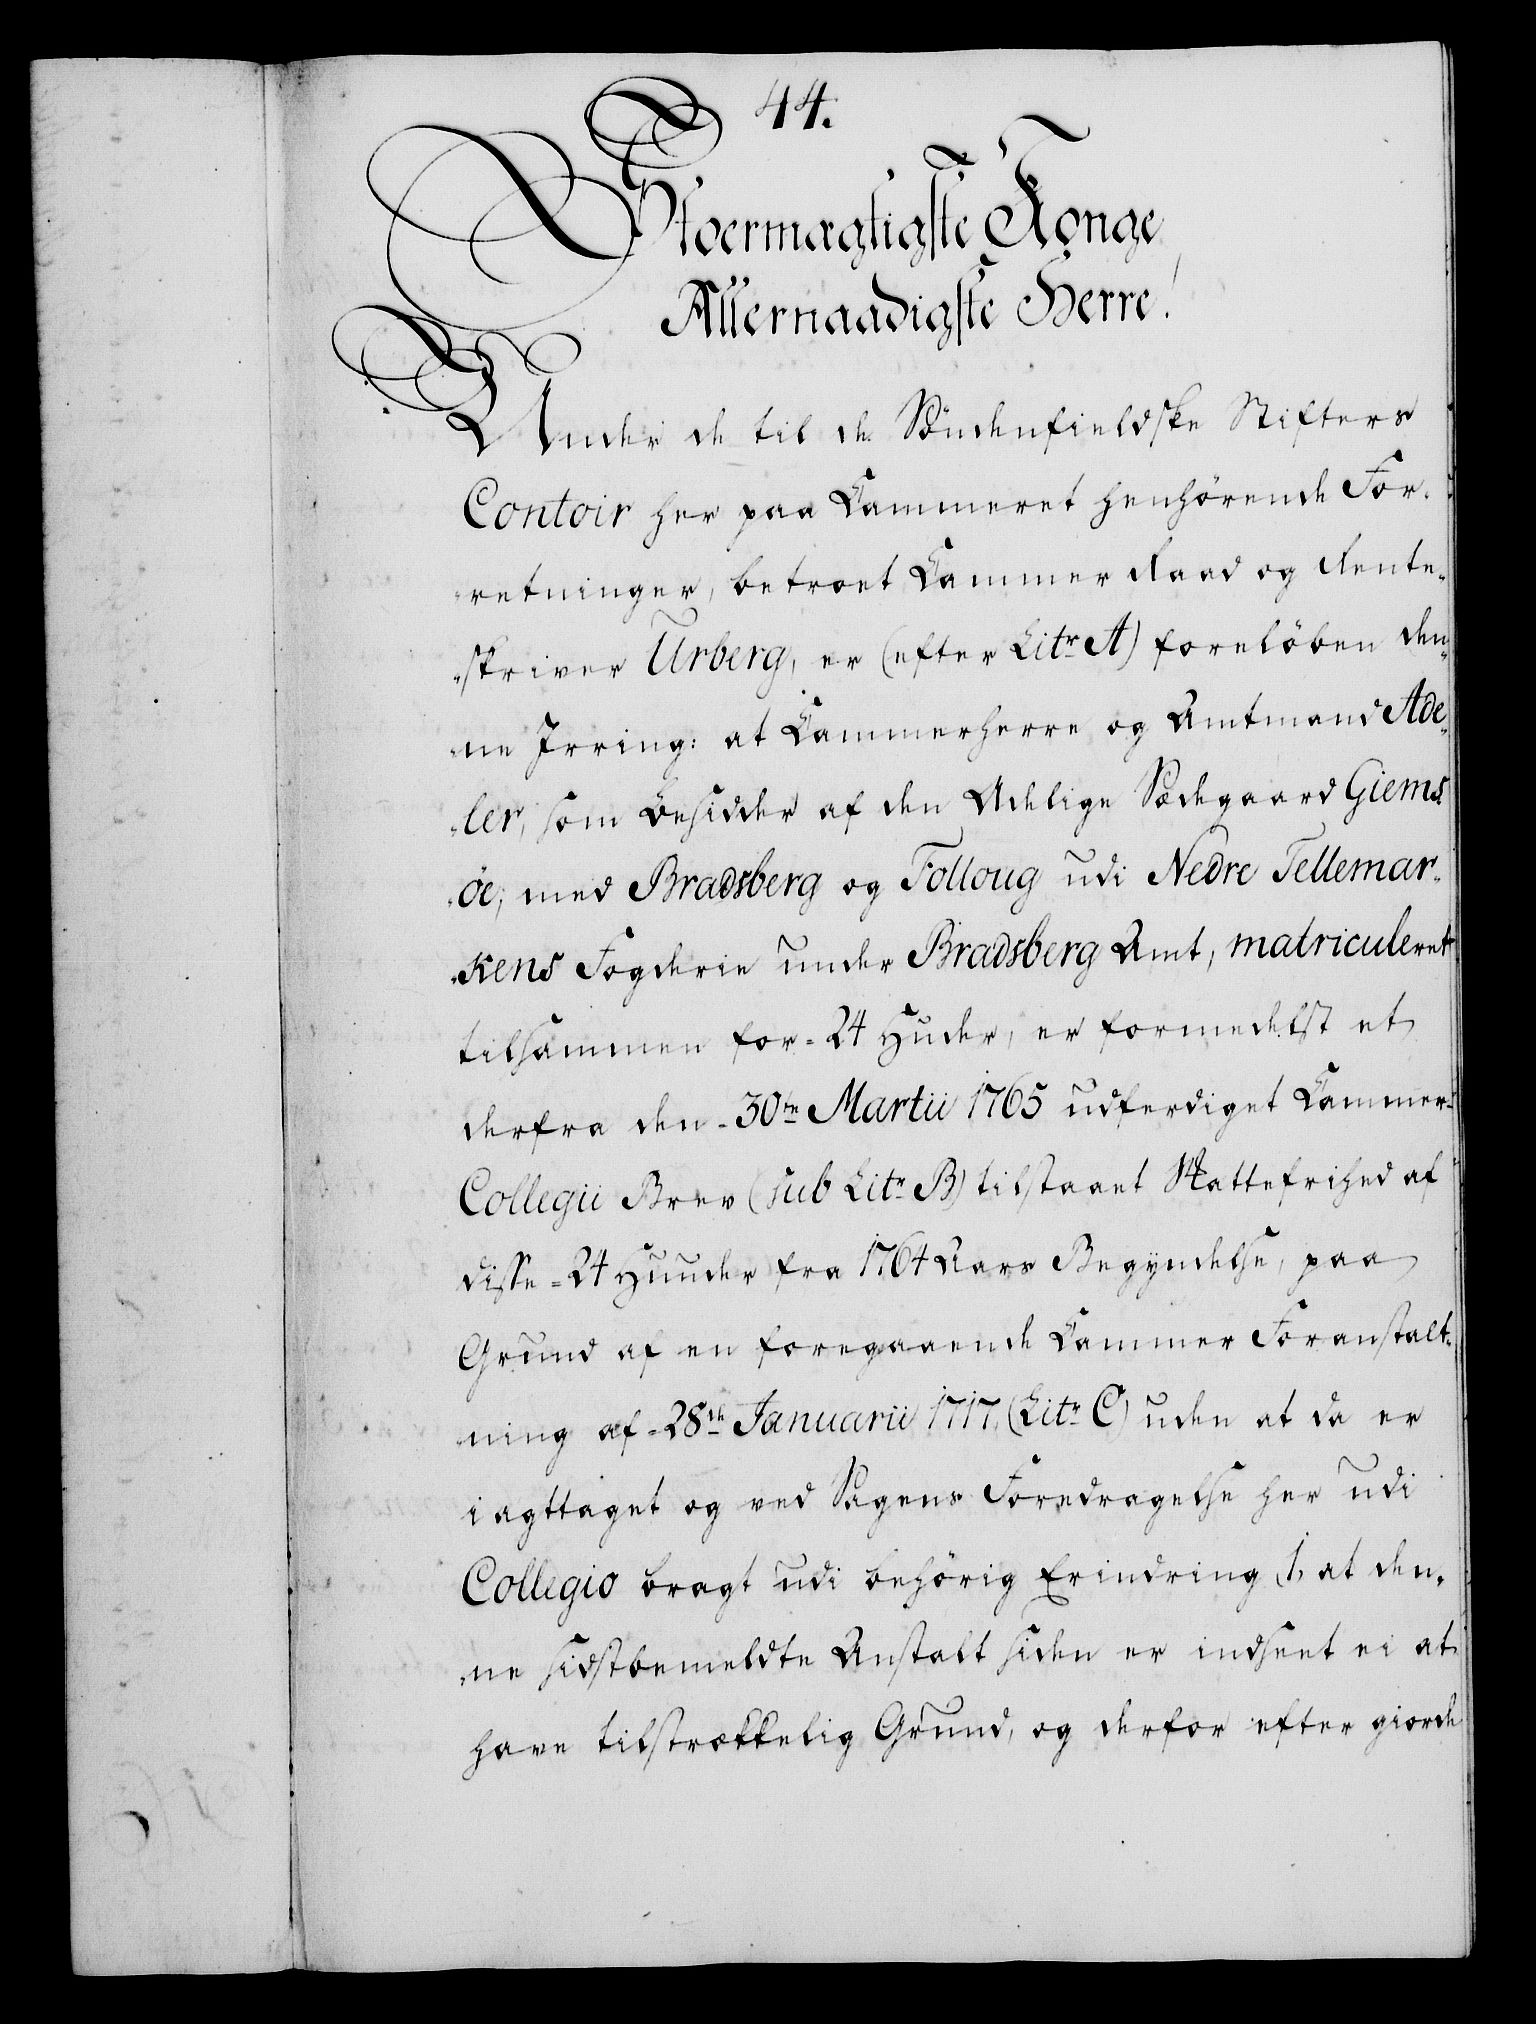 44.
Stoermægtigste Konge,
Allernaadigste Herre!
Under de til de Söndenfieldske Stifters
Contoir her paa Cammeret henhörende For-
retninger, betroet Cammer Raad og Rente-
skriver Urberg, er (efter Litr A) foreløben den-
ne Irring: at Cammerherre og Amtmand Ade-
ler, som Besidder af den Adelige Sædegaard Giems-
öe, med Bradsberg og Folloug udi Nedre Tellemar-
kens Fogderie under Bradsberg Amt, matriculeret
tilsammen for 24 Huder, er formedelst et
derfra den 30te Martii 1765 udferdiget Cammer-
Collegii Brev (sub Litr B) tilstaaet Skattefrihed af
disse 24 Huuder fra 1764 Aars Begyndelse, paa
Grund af en foregaaende Cammer Foranstalt-
ning af 28de Januarii 1717. (Litr C) uden at da er
iagttaget og ved Sagens Foredragelse her udi
Collegio bragt udi behörig Erindring, 1, at den-
ne sidstbemeldte Anstalt siden er indseet ei at
have tilstrækkelig Grund, og derfor efter giorde